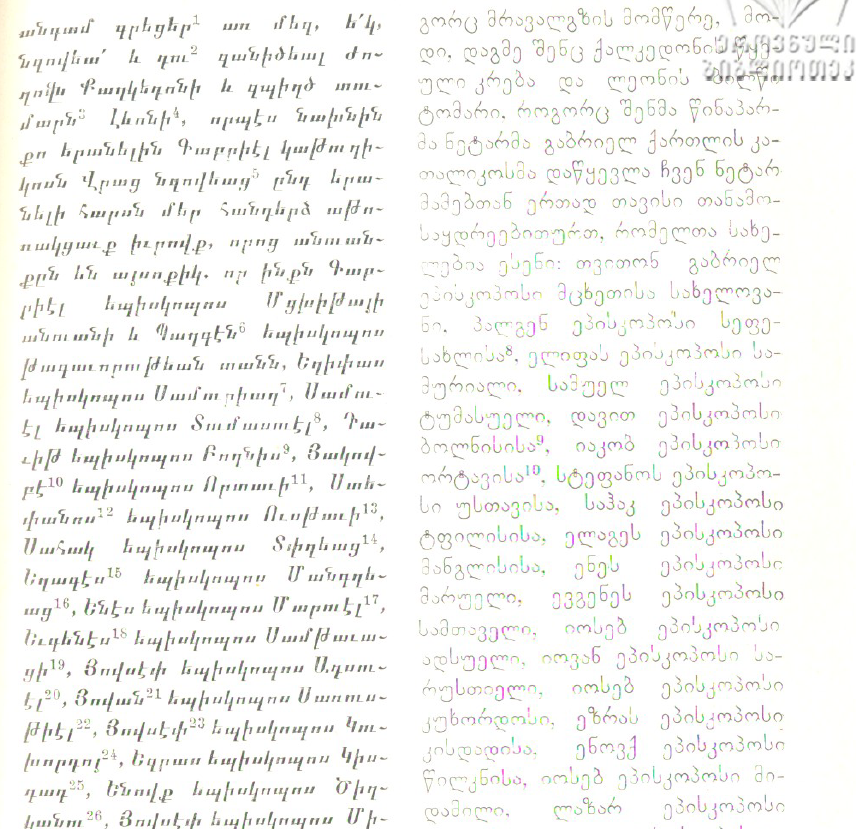 անգամ գրեցեր¹ առ մեզ, ե՛կ,
նզովեա՛ և դու² զանիծեալ ժո-
ղովս Քաղկեդոնի և զպիղծ տու-
մարն³ Լևոնի⁴, որպէս նախնին
քո երանելին Գաբրիէլ կաթողի-
կոսն Վրաց նզովեաց⁵ ընդ երա-
նելի հարսն մեր հանդերձ աթո-
ռակցաւք իւրովք, որոց անուան-
քըն են այսոքիկ. որ ինքն Գաբ-
րիէլ եպիսկոպոս Մցխիթայի
անուանի և Պաղգէն⁶ եպիսկոպոս
թագաւորութեան տանն, Եղիփաս
եպիսկոպոս Սամուրիաղ⁷, Սամու-
էլ եպիսկոպոս Տումաստէլ⁸, Դա-
ւիթ եպիսկոպոս Բողնիս⁹, Յակով-
բէ¹⁰ եպիսկոպոս Որտաւի¹¹, Ստե-
փանոս¹² եպիսկոպոս Ուսթաւի¹³,
Սահակ եպիսկոպոս Տփղեաց¹⁴,
Եղագէս¹⁵ եպիսկոպոս Մանգղե-
աց¹⁶, Ենէս եպիսկոպոս Մարուէլ¹⁷,
Եւգենէս¹⁸ եպիսկոպոս Սամթաւա-
ցի¹⁹, Յովսէփ եպիսկոպոս Ադսու-
էլ²⁰, Յովան²¹ եպիսկոպոս Սառուս-
թիէլ²², Յովսէփ²³ եպիսկոպոս Կու-
խորդոյ²⁴, Եզրաս եպիսկոպոս Կիս-
դադ²⁵, Ենովք եպիսկոպոս Ծիղ-
կանու²⁶, Յովսէփ եպիսկոպոս Մի-
გორც მრავალგზის მომწერე, მო-
დი, დაგმე შენც ქალკედონის წყე-
ული კრება და ლეონის ბილწი
ტომარი, როგორც შენმა წინაპარ-
მა ნეტარმა გაბრიელ ქართლის კა-
თალიკოსმა დაწყევლა ჩვენ ნეტარ
მამებთან ერთად თავისი თანამო-
საყდრეებითურთ, რომელთა სახე-
ლებია ესენი: თვითონ გაბრიელ
ეპისკოპოსი მცხეთისა სახელოვა-
ნი, პალგენ ეპისკოპოსი სეფე-
სახლისა⁸, ელიფას ეპისკოპოსი სა-
მურიალი, სამუელ ეპისკოპოსი
ტუმასუელი, დავით ეპისკოპოსი
ბოლნისისა⁹, იაკობ ეპისკოპოსი
ორტავისა¹⁰, სტეფანოს ეპისკოპო-
სი უსთავისა, საჰაკ ეპისკოპოსი
ტფილისისა, ელაგეს ეპისკოპოსი
მანგლისისა, ენეს ეპისკოპოსი
მარუელი, ევგენეს ეპისკოპოსი
სამთაველი, იოსებ ეპისკოპოსი
ადსუელი, იოვან ეპისკოპოსი სა-
რუსთიელი, იოსებ ეპისკოპოსი
კუხორდოსი, ეზრას ეპისკოპოსი
კისდადისა, ენოვქ ეპისკოპოსი
წილკნისა, იოსებ ეპისკოპოსი მი-
დამილი, ლაზარ ეპისკოპოსი
ეროვნული
ბიბლიოთეკა